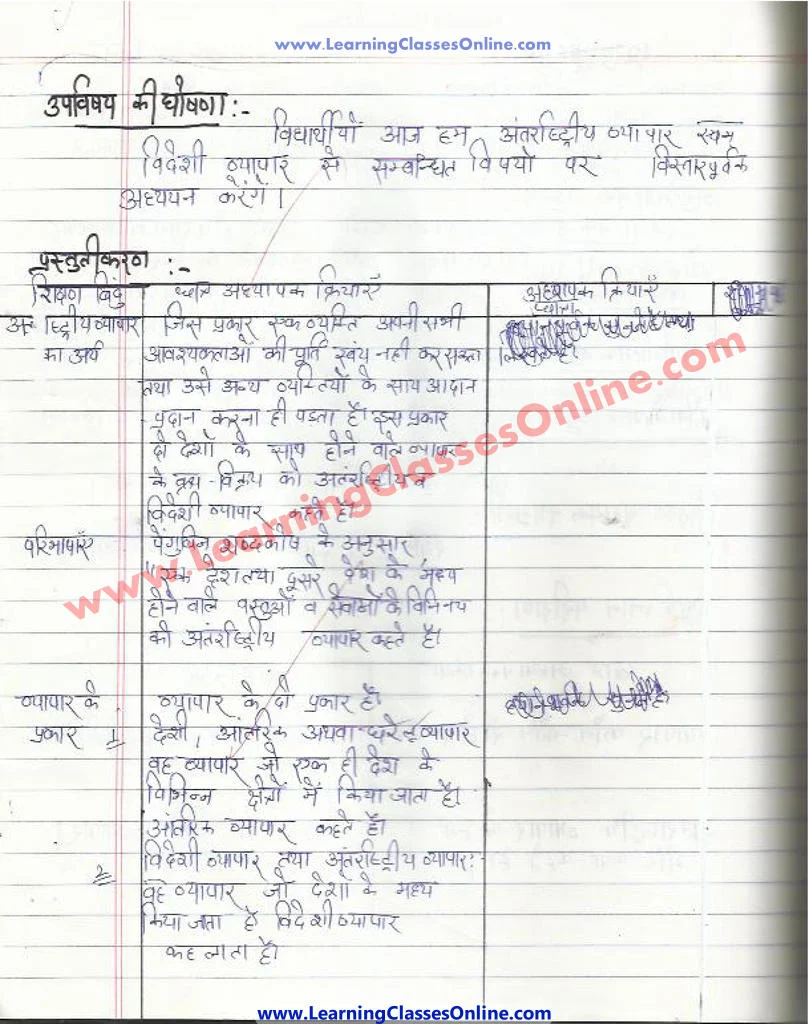 www.LearningClassesOnline.com
उपविषय की घोषणा :-
विद्यार्थीयों आज हम अंतर्राष्ट्रीय व्यापार
विदेशी व्यापार से सम्बन्धित विषयो पर विस्तारपूर्वक
अध्ययन करेंगें ।
प्रस्तुतीकरण :-
शिक्षण बिंदु छात्र अध्यापक क्रियाएँ अध्यापक क्रियाएँ
छात्रा
व्यापार जिस प्रकार एक व्यक्ति अपनी सभी
का अर्थ आवश्यकताओं की पूर्ति स्वंय नही कर सकता
तथा उसे अन्य व्यक्तियों के साथ आदान
प्रदान करना ही पडता है। इस प्रकार
दो देशों के साथ होने वाले व्यापार
के क्रय-विक्रय को अंतर्राष्ट्रीय व
विदेशी व्यापार कहते है।
परिभाषाएँ पेंगुविन शब्दकोष के अनुसार
"एक देश तथा दूसरे देश के मध्य
होने वाले वस्तुओं व सेवाओं के विनिमय
को अंतर्राष्ट्रीय व्यापार कहते है।
www.LearningClassesOnline.com
व्यापार के व्यापार के दो प्रकार है।
प्रकार 1 देशी, आंतरिक अथवा घरेलू व्यापार
वह व्यापार जो एक ही देश के
विभिन्न क्षेत्रों में किया जाता है।
आंतरिक व्यापार कहते है।
विदेशी व्यापार तथा अंतर्राष्ट्रीय व्यापार:-
2 वह व्यापार जो देशो के मध्य
किया जाता है विदेशी व्यापार
कहलाता है।
www.LearningClassesOnline.com